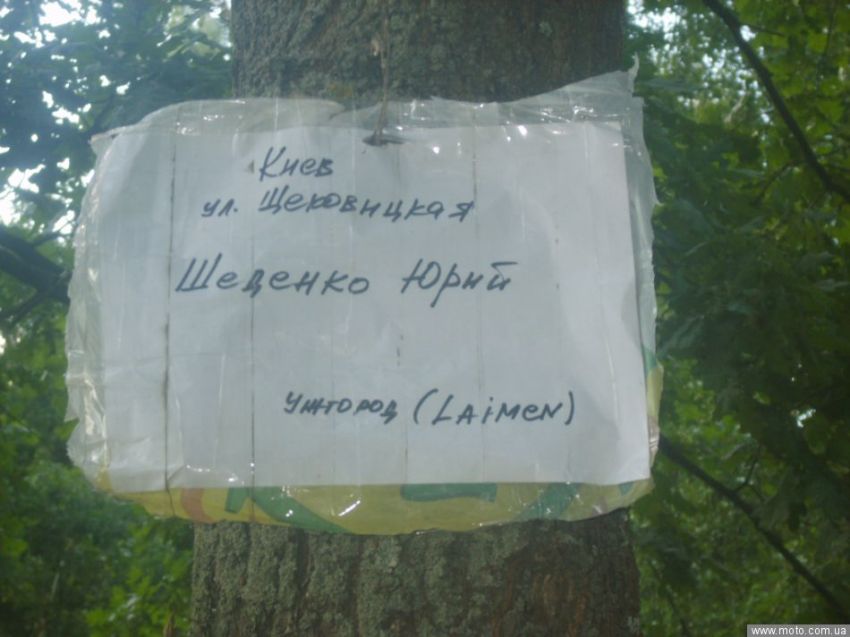 Киев
ул. Щековицкая
Шеденко Юрий
Ужгород (LAimen)
www.moto.com.ua